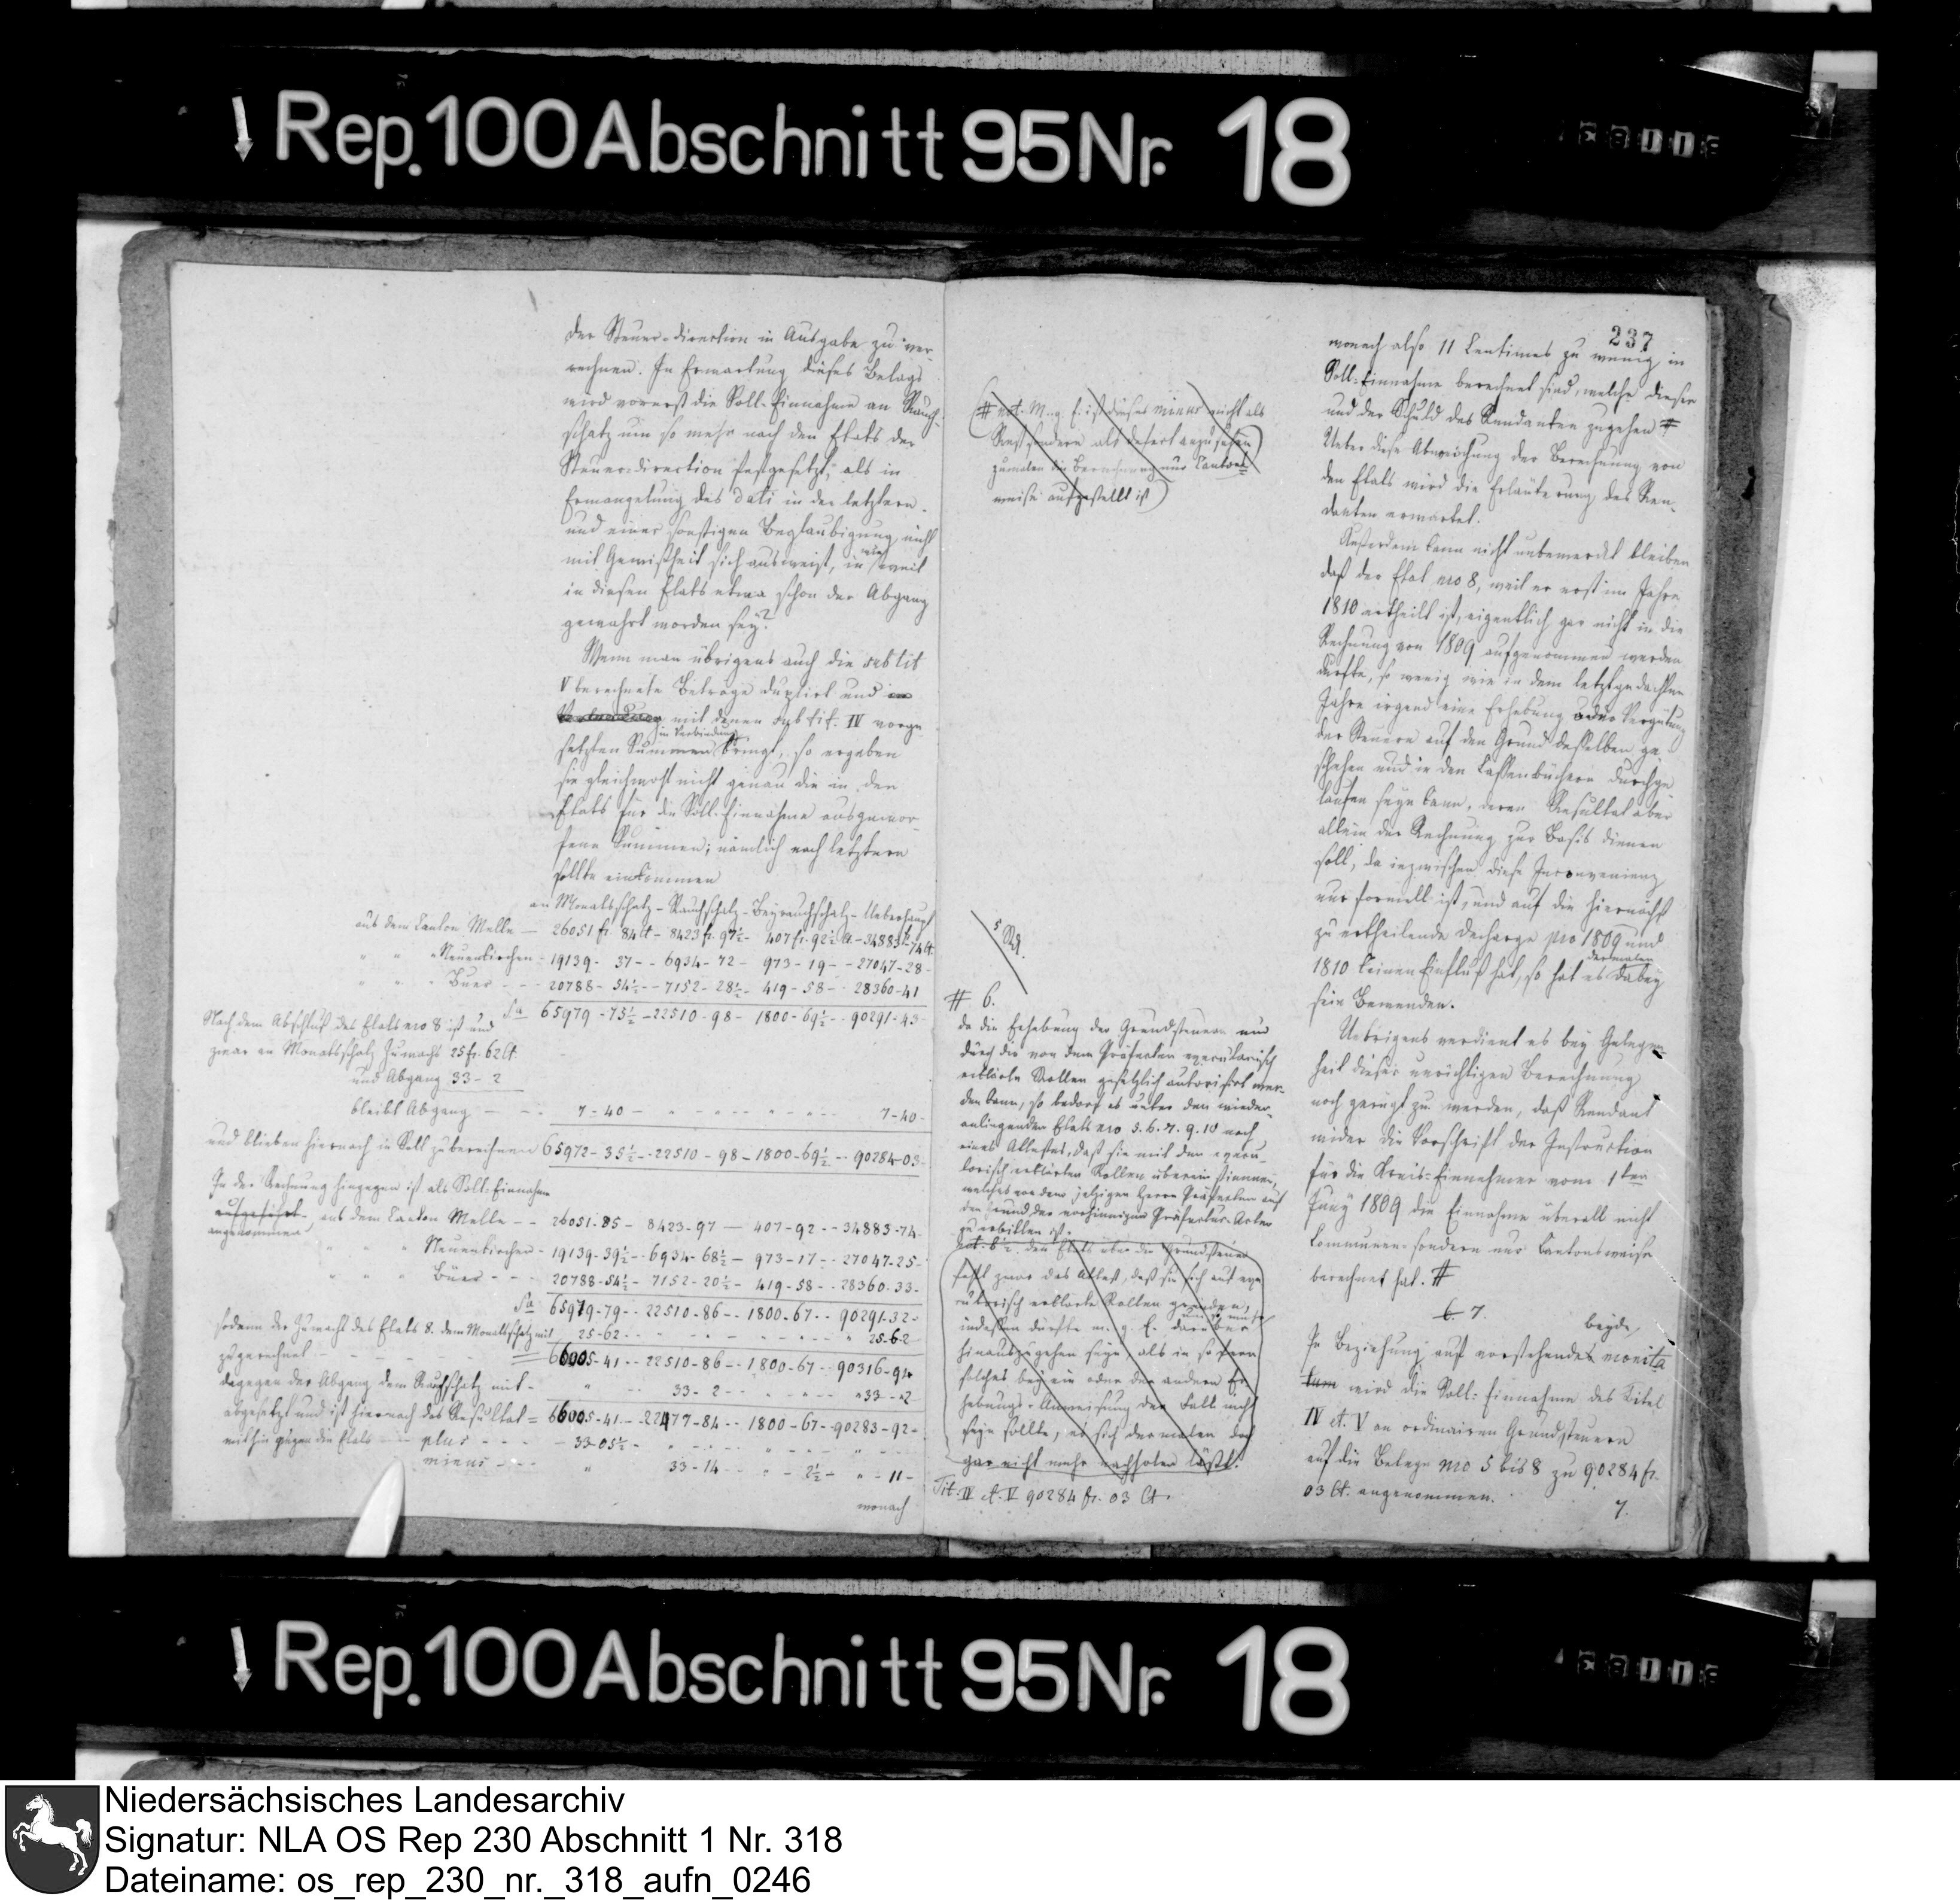 Rep. 100 Abschnitt 95 Nr. 18
der Steuer-direction in Ausgabe zu ver-
rechnen. In Erwartung dieses Belags
wird vorerst die Soll-Einnahme an Rauch-
schatz um so mehr nach den Etats der
Steuer-direction festgesetzt, als in
Ermangelung des dati in der letztern
und einer sonstigen Beglaubigung, nicht
mit Gewißheit sich ausweist, in wie weit
in diesen Etats etwa schon der Abgang
gewahrt worden sey?
Wenn man übrigens auch die sub tit
V berechnete Betrage duplirt und
mit denen sub tit. IV vorge-
setzten Summen in Verbindung bringt, so ergeben
sie gleichwohl nicht genau die in den
Etats für die Soll-Einnahme ausgewor-
fene Summen; nämlich nach letztern
sollte einkommen
an Monatsschatz - Rauchschatz - Beyrauchschatz - Ueberhaupt
aus dem Canton Melle — 26051 fr. 84 Ct - 8423 fr. 97½ - 407 fr. 92½ Ct. - 34883 fr. 74 Ct.
" " " Neuenkirchen - 19139 - 37 - - 6934 - 72 - 973 - 19 - - 27047 - 28 -
" " " Buer - - - 20788 - 54½ - - 7152 - 28½ - 419 - 58 - - 28360 - 41
Sa 65979 - 75½ - 22510 - 98 - 1800 - 69½ - - 90291 - 43
Nach dem Abschluß des Etats nro 8 ist und
zwar an Monatsschatz Zuwachs 25 fr. 62 Ct.
und Abgang 33 - 2
bleibt Abgang - - - 7 - 40 - " - - - " - - - - 7 - 40 -
und blieben hiernach in Soll zu berechnen 65972 - 35½ - - 22510 - 98 - 1800 - 69½ - - 90284 - 03 -
In der Rechnung hingegen ist als Soll-Einnahme
aufgeführt angenommen, aus dem Canton Melle - - 26051 - 85 - 8423 - 97 — 407 - 92 - - 34883 - 74 -
" " " Neuenkirchen - 19139 - 39½ - - 6934 - 68½ — 973 - 17 - - 27047 - 25 -
" " " Büer - - - 20788 - 54½ - 7152 - 20½ - 419 - 58 - - 28360 - 33 -
Sa 65979 - 79 - - 22510 - 86 - - 1800 - 67 - - 90291 - 32 -
sodann der Zuwachs des Etats 8. dem Monatsschatz mit - 25 - 62 - - - - - - - - - " 25 - 62
zugerechnet - - - - - 66005 - 41 - - 22510 - 86 - - 1800 - 67 - - 90316 - 94
dagegen der Abgang dem Rauchschatz mit - " - - 33 - 2 - - - - - - - " 33 - " 2
abgesetzt und ist hiernach das Resultat = 66005 - 41 - - 22477 - 84 - - 1800 - 67 - - 90283 - 92 -
mithin gegen die Etats - - plus - - - 33 - 05½ - " - - - " - - - " - -
minus - - - " 33 - 14 - - " - 2½ - " - 11 -
wonach
(# not. M. g. E. ist dieses minus nicht als
Rest sondern als defect anzusehen
zumalen die Berechnung nur Canton-
weise aufgestellt ist)
# 6.
da die Erhebung der Grundsteuern nur
durch die von dem Präfecten executorisch
erklärte Rollen gesetzlich autorisirt wer-
den kann, so bedarf es unter den wieder-
anliegenden Etats nro 5. 6. 7. 9. 10 noch
eines Attestes, daß sie mit den execu-
torisch erklärten Rollen übereinstimmen,
welches von dem jetzigen Herrn Präfecten auf
den Grund der vorhinnigen Präfectur-Acten
zu erbitten ist.
den Etats über die Grundsteuer
fehlt zwar das Attest, daß sie sich auf exe
cutorisch erklärte Rollen gründen,
indessen dürfte m. g. E. darüber
hinauszugehen seyn, als in so fern
solches bey ein oder der andern Er
hebungs-Anweisung der Fall nicht
seyn sollte, es sich dermalen doch
gar nicht mehr nachholen läßt.
Tit. IV et. V 90284 fr. 03 Ct.
237
wonach also 11 Centimes zu wenig in
Soll-Einnahme berechnet sind, welche dieser
und der Schuld des Rendanten zugehen #
Ueber diese Abweichung der Berechnung von
den Etats wird die Erläuterung des Ren-
danten erwartet.
Außerdem kann nicht unbemerkt bleiben
daß der Etat nro 8, weil er erst im Jahre
1810 ertheilt ist, eigentlich gar nicht in die
Rechnung von 1809 aufgenommen werden
durfte, so wenig wie in dem letztgedachten
Jahre irgend eine Erhebung oder Vergütung
der Steuern auf den Grund desselben ge-
schehen und in den Cassenbüchern durchge-
laufen seyn kann, deren Resultat aber
allein der Rechnung zur Basis dienen
soll, da inzwischen diese Inconvenienz
nur formell ist, und auf die hiernächst
zu ertheilende Decharge pro 1809 und
1810 keinen Einfluß hat, so hat es dermalen dabey
sein Bewenden.
Uebrigens verdient es bey Gelegen-
heit dieser unrichtigen Berechnung
noch gerügt zu werden, daß Rendant
wider die Vorschrift der Instruction
für die Kreis-Einnehmer vom 1ten
Juny 1809 die Einnahme überall nicht
Communen- sondern nur Cantonsweise
berechnet hat. #
6. 7.
In Beziehung auf vorstehende beyde monita
wird die Soll-Einnahme des Titel
IV et. V an ordinairen Grundsteuern
auf die Belege nro 5 bis 8 zu 90284 fr.
03 Ct. angenommen.
7.
Rep. 100 Abschnitt 95 Nr. 18
Niedersächsisches Landesarchiv
Signatur: NLA OS Rep 230 Abschnitt 1 Nr. 318
Dateiname: os_rep_230_nr._318_aufn_0246